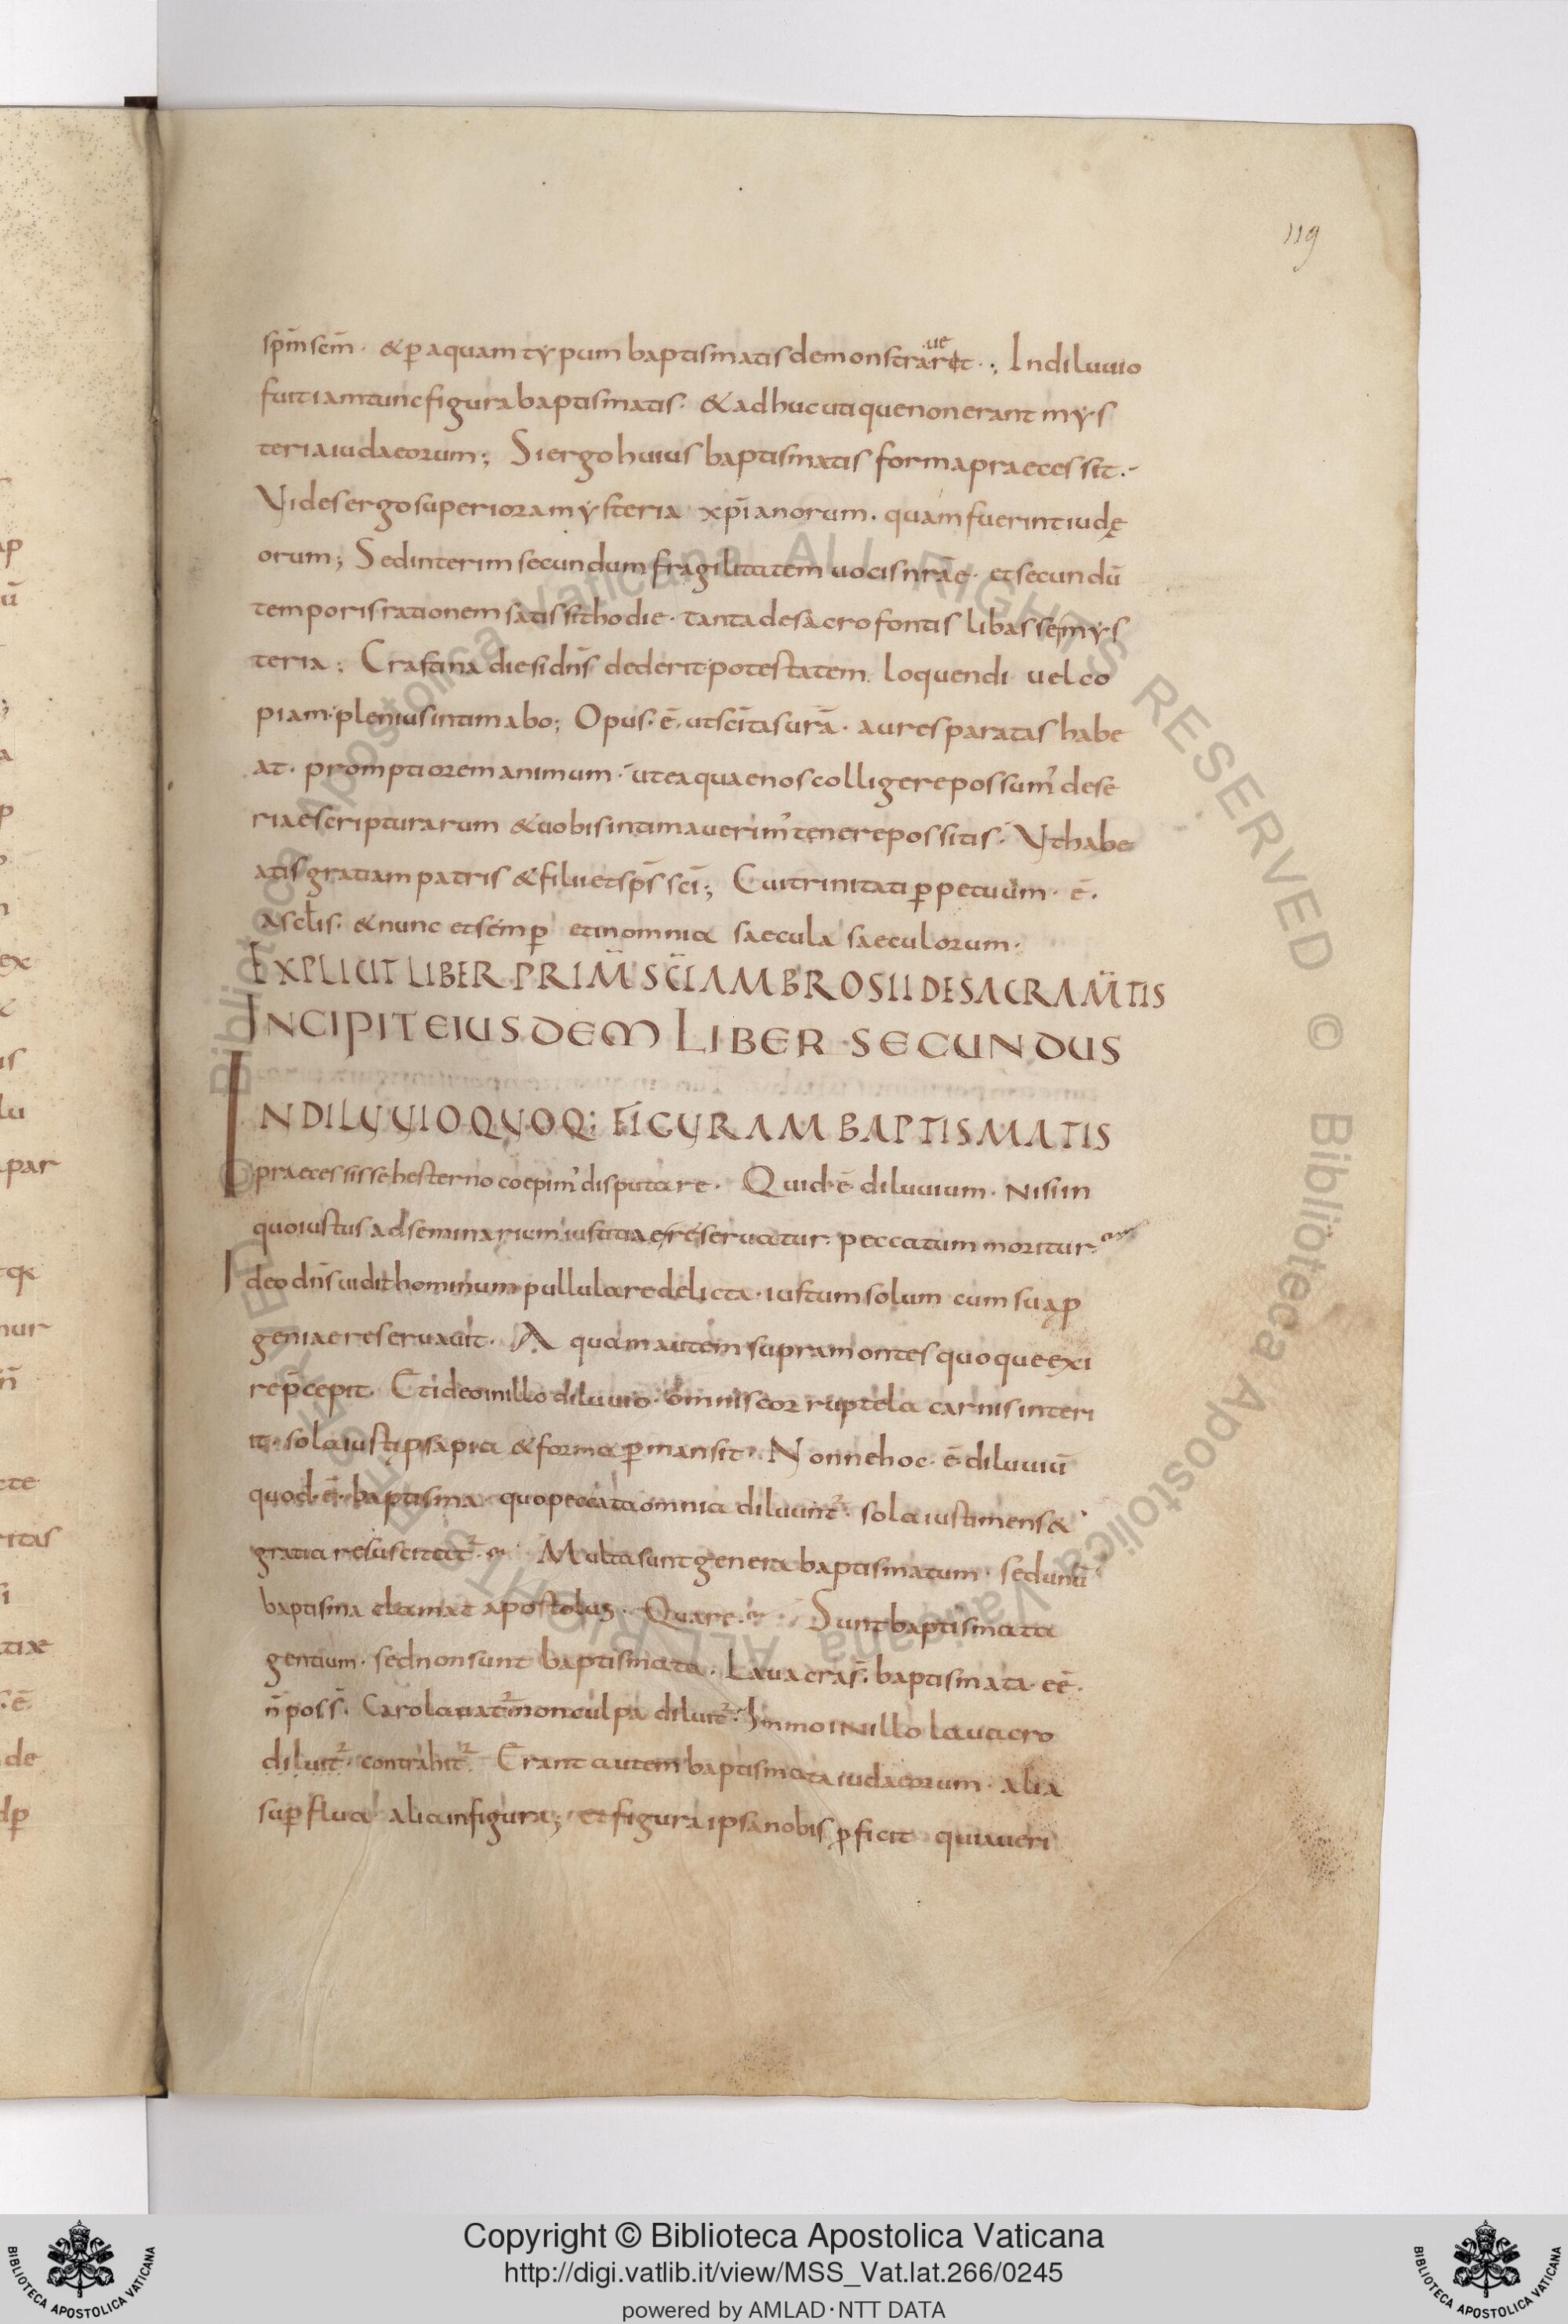 119
sp̄m sc̄m · & ꝑ aquam typum baptismatis demonstraret ·; In diluuio
ue
fuit iam tunc figura baptismatis · & adhuc utique non erant mys
teria iudaeorum; Si ergo huius baptismatis forma praecessit ·
Vides ergo superiora mysteria xp̄ianorum · quam fuerint iudę
orum; Sed interim secundum fragilitatem uocis nr̄ae · et secundū
temporis rationem satis sit hodie · tanta de sacro fontis libasse mys
teria; Crastina die si dn̄s dederit potestatem loquendi uel co
piam · plenius intimabo; Opus · ē · ut sc̄itas ur̄a · aures paratas habe
at · promptiorem animum · ut ea quae nos colligere possum' de se
riae scripturarum & uobis intimauerim' tenere possitis · Vt habe
atis gratiam patris & filii et sp̄s sc̄i; Cui trinitati ꝑpetuum · ē ·
a sclīs · & nunc et semꝑ et in omnia saecula saeculorum ·
EXPLICIT LIBER PRIM̄ SC̄I AMBROSII DE SACRAM̄TIS
INCIPIT EIUSDEM LIBER SECUNDUS
IN DILVVIO QVOQ; FIGVRAM BAPTISMATIS
praecessisse hesterno coepim' disputare · Quid · ē · diluuium · nisi in
quo iustus ad seminarium iustitiae reseruatur · peccatum moritur
Ideo dn̄s uidit hominum pullulare delicta · iustum solum cum sua ꝓ
geniae reseruauit · Aquam autem supra montes quoque exi
re p̄cepit · Et ideo in illo diluuio · omnis corruptela carnis interi
it · sola iusti ꝓsapia & forma ꝑmansit · Nonne hoc · ē · diluuiū
quod · ē · baptisma · quo peccata omnia diluunt² · sola iusti mens &
gratia resuscitat² · Multa sunt genera baptismatum · sed unū
baptisma clamat apostolus · Quare · Sunt baptismata
gentium · sed non sunt baptismata · Lauacra s̄ · baptismata · eē ·
n̄ poss̄ · Caro lauat² non culpa diluit² · Immo in illo lauacro
diluit² · contrahit² · Erant autem baptismata iudaeorum · alia
suꝑflua alia in figura; et figura ipsa nobis ꝓficit quia ueri
Copyright © Biblioteca Apostolica Vaticana
http://digi.vatlib.it/view/MSS_Vat.lat.266/0245
powered by AMLAD·NTT DATA